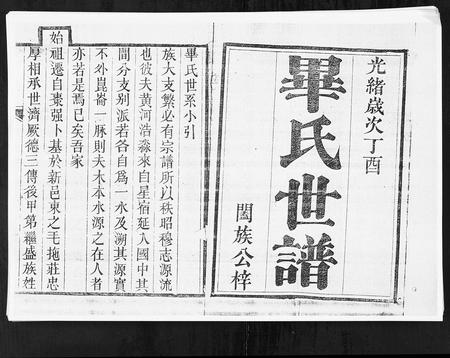 光緒歲次丁酉
畢氏世譜
闔族公梓
畢氏世系小引
族大支繁必有宗譜所以秩昭穆志源流
也彼夫黃河浩淼來自星宿延入國中其
間分支别派若各自爲一水及溯其源實
不外崑崙一脉則夫木本水源之在人者
亦若是焉已矣吾家
始祖遷自棗强卜基於新邑東之毛拖莊忠
厚相承世濟厥德三傳後甲第繼盛族姓